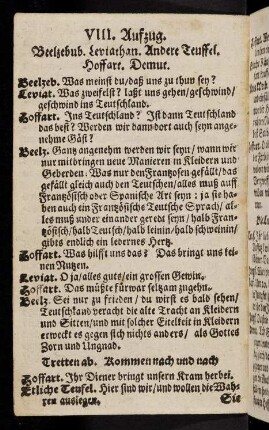 VIII. Aufzug.
Beelzebub. Leviathan. Andere Teuffel.
Hoffart. Demut.
Beelzeb. Was meinst du/daß uns zu thun sey?
Leviat. Was zweifelst? laßt uns gehen/geschwind/
geschwind ins Teutschland.
Hoffart. Ins Teutschland? Ist dann Teutschland
das best? Werden wir dann dort auch seyn ange-
nehme Gäst?
Beelz. Gantz angenehm werden wir seyn/wann wir
nur mitbringen neue Manieren in Kleidern und
Geberden. Was nur den Frantzosen gefällt/das
gefällt gleich auch den Teutschen/alles muß auff
Frantzösisch oder Spanische Art seyn: ja sie ha-
ben auch ein Frantzösische Teutsche Sprach/al-
les muß unter einander geredt seyn/halb Fran-
tzösisch/halb Teutsch/halb leinin/halb schweinin/
gibts endlich ein ledernes Hertz.
Hoffart. Was hilfft uns das? Das bringt uns kei-
nen Nutzen.
Leviat. O ja/alles guts/ein grossen Gewin.
Hoffart. Das müßte fürwar seltzam zugehn.
Beelz. Sei nur zu frieden/du wirst es bald sehen/
Teutschland veracht die alte Tracht an Kleidern
und Sitten/und mit solcher Eitelkeit in Kleidern
erweckt es gegen sich nichts anders/als Gottes
Zorn und Ungnad.
Tretten ab. Kommen nach und nach
Hoffart. Ihr Diener bringt unsern Kram herbei.
Etliche Teufel. Hier sind wir/und wollen die Wah-
ren auslegen.
Sie